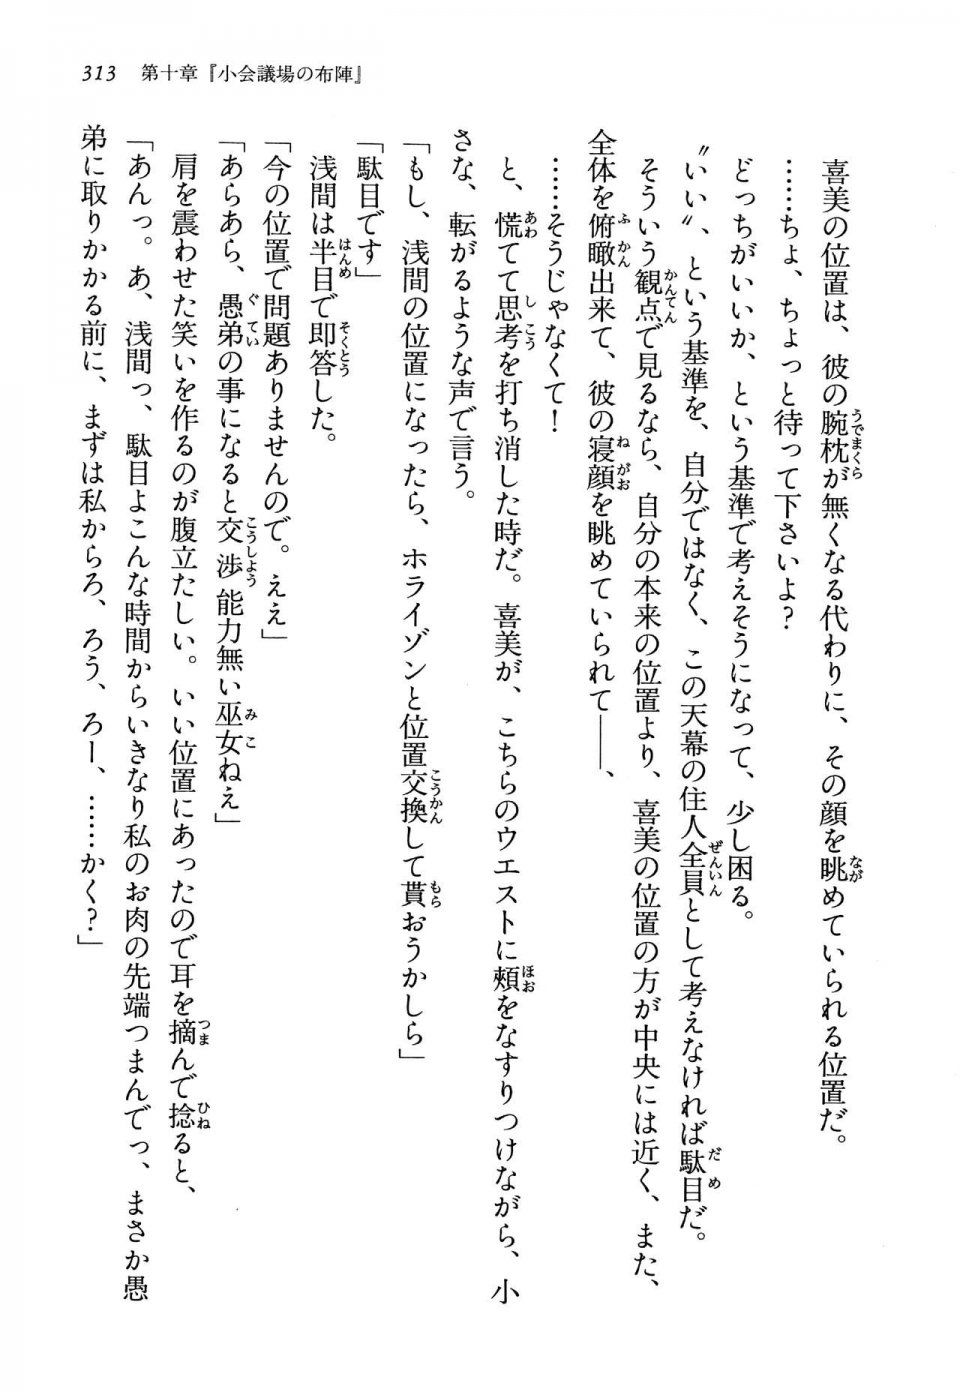 313　第十章『小会議場の布陣』
喜美の位置は、彼の腕枕が無くなる代わりに、その顔を眺めていられる位置だ。
……ちょ、ちょっと待って下さいよ?
どっちがいいか、という基準で考えそうになって、少し困る。
〝いい〟、という基準を、自分ではなく、この天幕の住人全員として考えなければ駄目だ。
そういう観点で見るなら、自分の本来の位置より、喜美の位置の方が中央には近く、また、
全体を俯瞰出来て、彼の寝顔を眺めていられて――、
……そうじゃなくて!
と、慌てて思考を打ち消した時だ。喜美が、こちらのウエストに頰をなすりつけながら、小
さな、転がるような声で言う。
「もし、浅間の位置になったら、ホライゾンと位置交換して貰おうかしら」
「駄目です」
浅間は半目で即答した。
「今の位置で問題ありませんので。ええ」
「あらあら、愚弟の事になると交渉能力無い巫女ねえ」
肩を震わせた笑いを作るのが腹立たしい。いい位置にあったので耳を摘んで捻ると、
「あんっ。あ、浅間っ、駄目よこんな時間からいきなり私のお肉の先端つまんでっ、まさか愚
弟に取りかかる前に、まずは私からろ、ろう、ろー、……かく?」